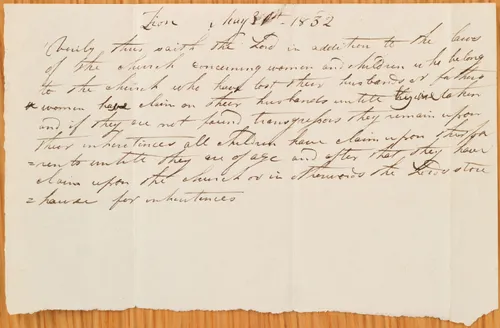 Zion May 31st 1832
Verily thus saith the Lord in addition to the laws
of the church concerning women and children who belong
to the church who have lost their husbands or fathers
women have claim on their husbands untill they are taken
and if they are not found transgressors they remain upon
their inheritances all children have claim upon their pa
=rents untill they are of age and after that they have
claim upon the church or in otherwords the Lords store
=house for inheritances